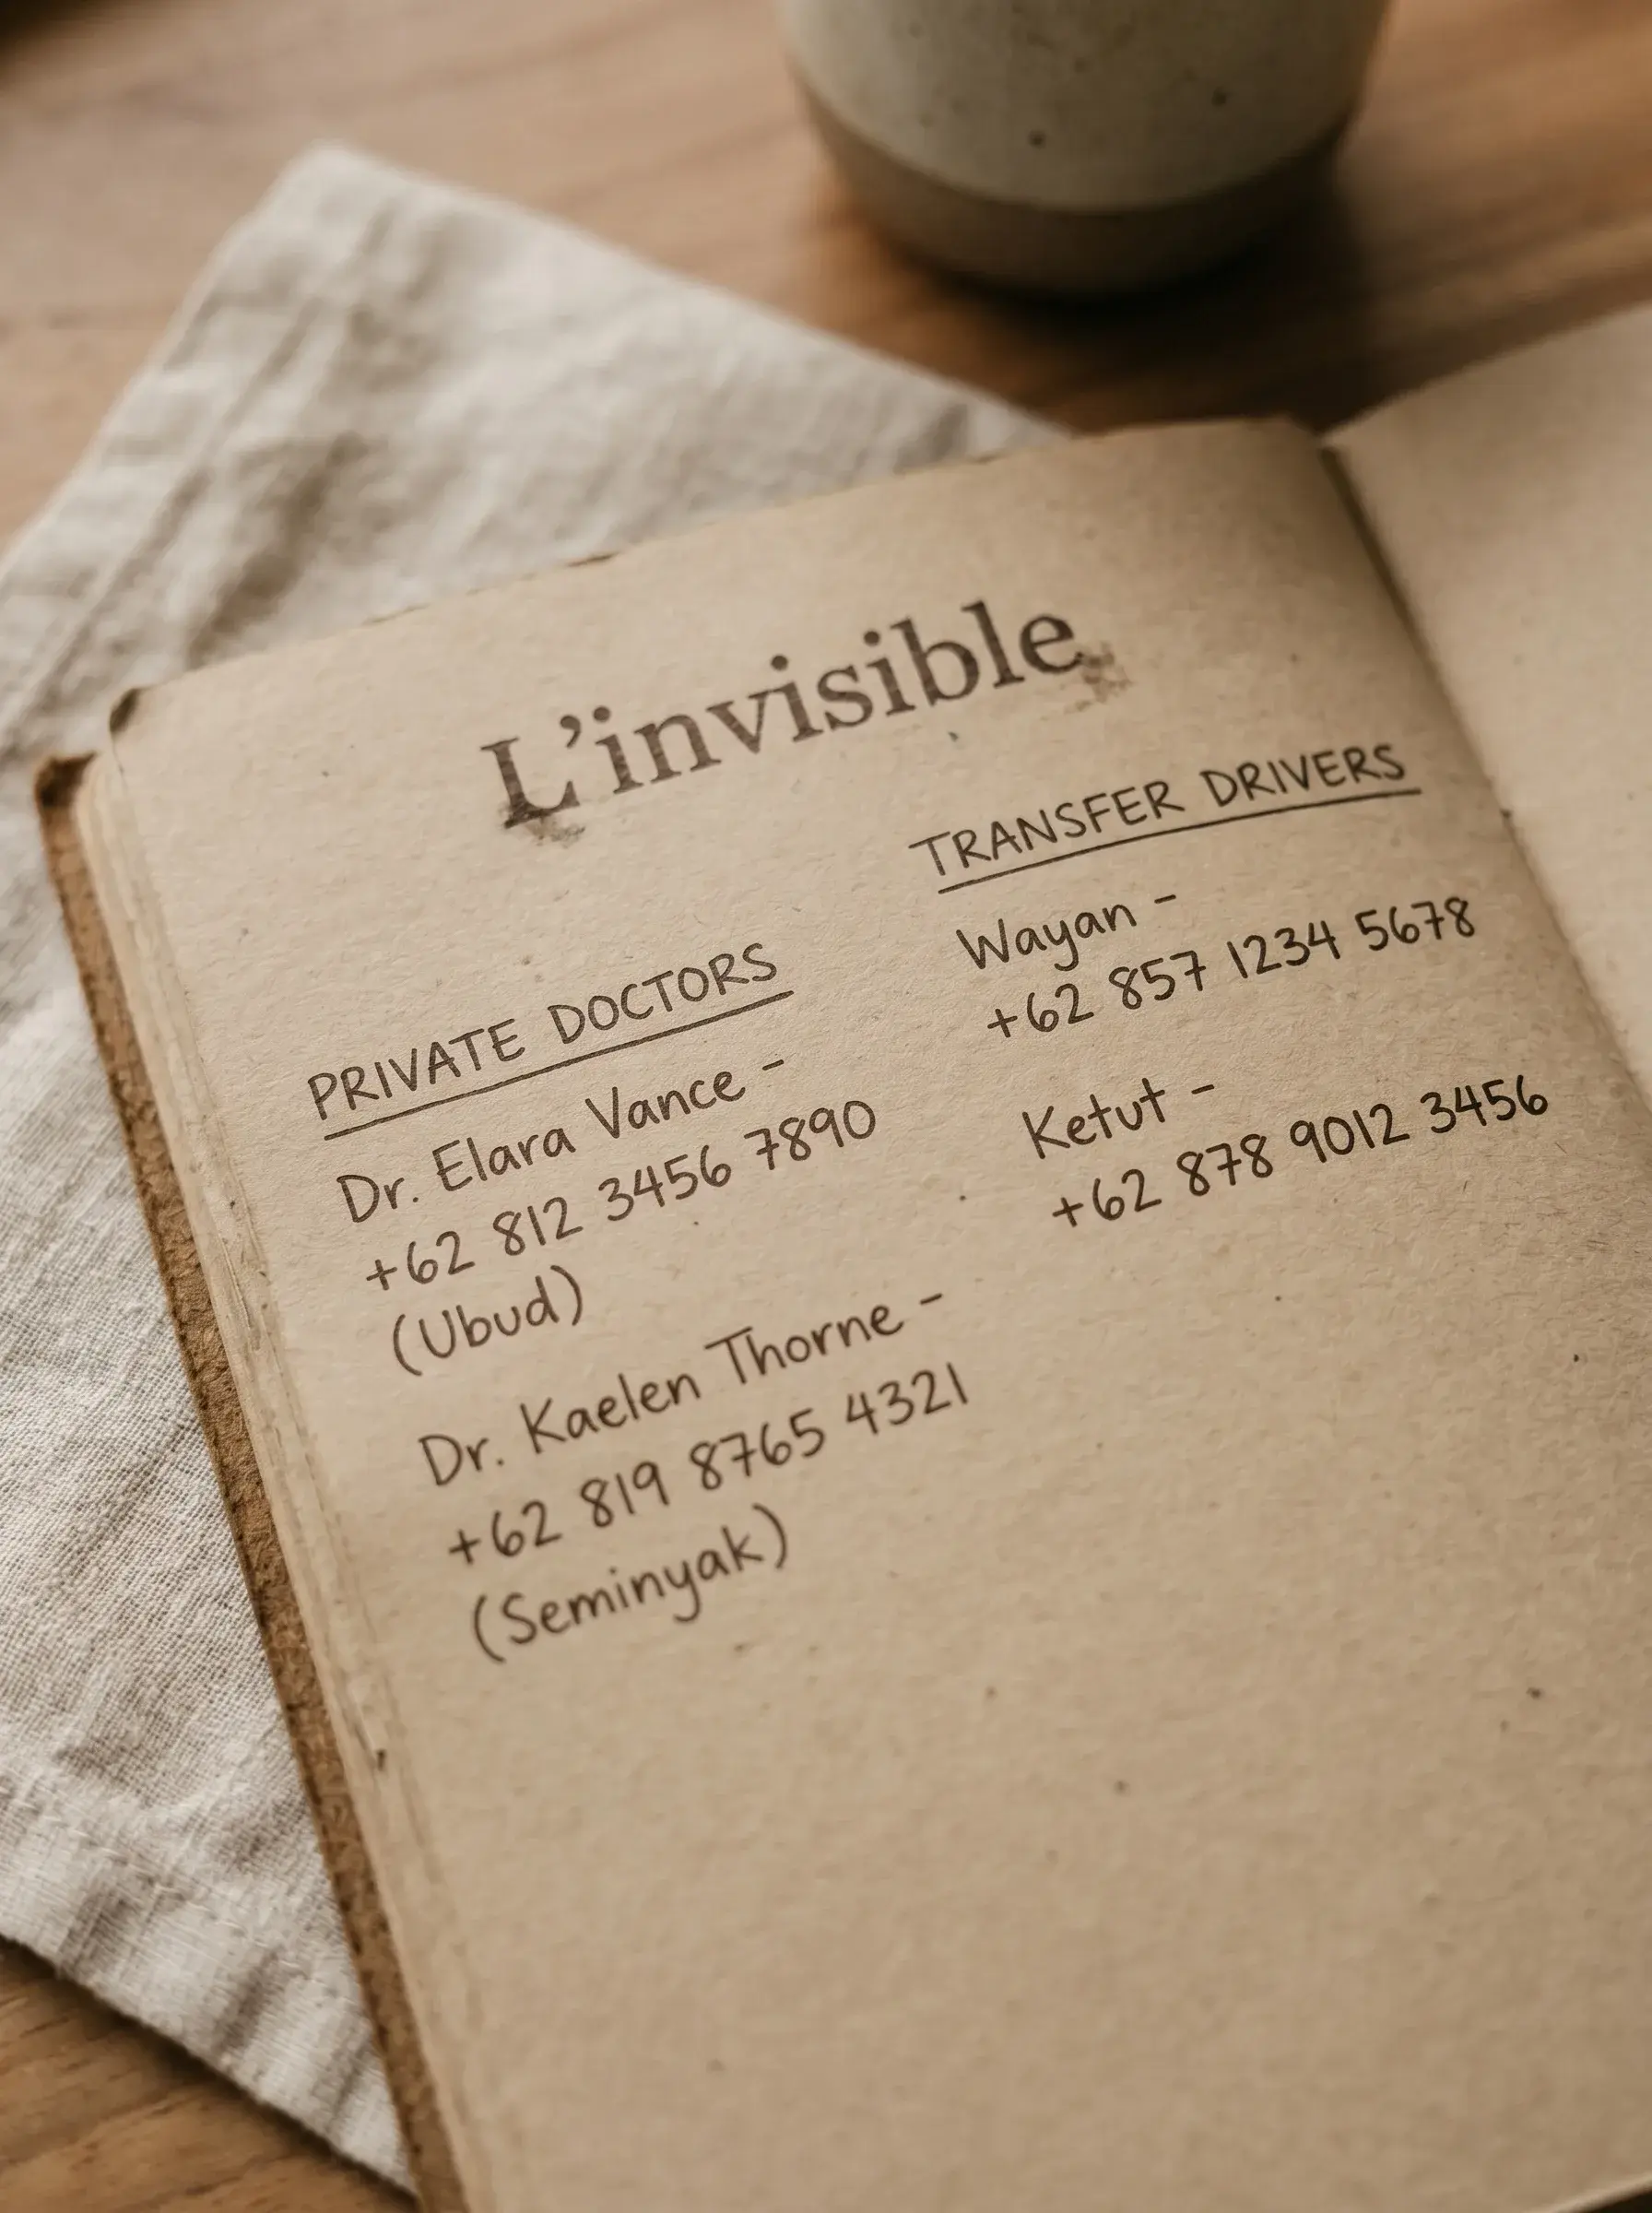 L'invisible
PRIVATE DOCTORS
Dr. Elara Vance -
+62 812 3456 7890
(Ubud)
Dr. Kaelen Thorne -
+62 819 8765 4321
(Seminyak)
TRANSFER DRIVERS
Wayan -
+62 857 1234 5678
Ketut -
+62 878 9012 3456